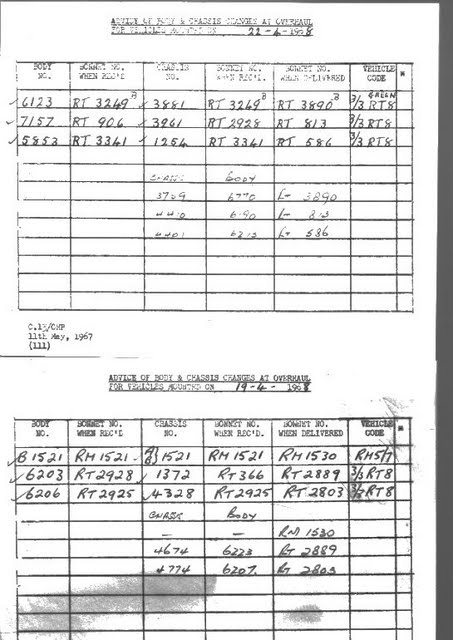 ADVICE OF BODY & CHASSIS CHANGES AT OVERHAUL
FOR VEHICLES MOUNTED ON 22-4-1968
BODY NO. BONNET NO. WHEN REC'D CHASSIS NO. BONNET NO. WHEN REC'D. BONNET NO. WHEN DELIVERED VEHICLE CODE *
6123 RT 3249 B 3881 RT 3249 B RT 3890 B GREEN 3/3 RT8
7157 RT 906 3961 RT 2928 RT 813 3/3 RT8
5853 RT 3341 1254 RT 3341 RT 586 3/3 RT8
CHASS BODY
3769 6770 RT 3890
6190 RT 813
4401 RT 586
C.13/CMP
11th May, 1967
(111)
ADVICE OF BODY & CHASSIS CHANGES AT OVERHAUL
FOR VEHICLES MOUNTED ON 19-4-1968
BODY NO. BONNET NO. WHEN REC'D CHASSIS NO. BONNET NO. WHEN REC'D. BONNET NO. WHEN DELIVERED VEHICLE CODE *
B1521 RM 1521 1521 RM 1521 RM 1530 RM5/7
6203 RT2928 1372 RT366 RT2889 3/3 RT8
6206 RT2925 4328 RT2925 RT2803 3/3 RT8
CHASS BODY
— — RM 1530
4674 6223 RT 2889
4774 6207. RT 2803